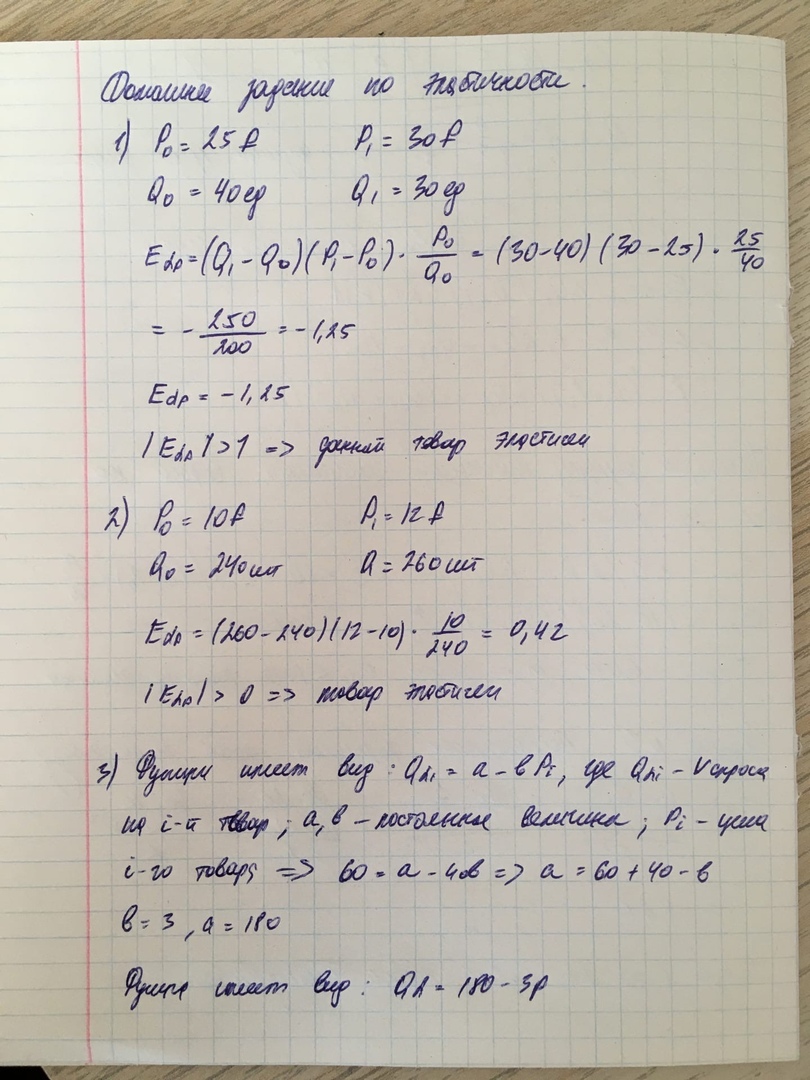 Домашнее задание по эластичности.
1) P₀ = 25 ₽ P₁ = 30 ₽
Q₀ = 40 ед Q₁ = 30 ед
Edp = (Q₁ − Q₀)(P₁ − P₀) · P₀/Q₀ = (30−40)(30−25) · 25/40
= − 250/200 = −1,25
Edp = −1,25
|Edp| > 1 => данный товар эластичен
2) P₀ = 10 ₽ P₁ = 12 ₽
Q₀ = 240 шт Q = 260 шт
Edp = (260−240)(12−10) · 10/240 = 0,42
|Edp| > 0 => товар эластичен
3) Функция имеет вид: Qdi = a − вPi, где Qdi − V спроса
на i-й товар; a, в − постоянные величины; Pi − цена
i-го товара => 60 = a − 40в => a = 60 + 40 − в
в = 3, a = 180
Функция имеет вид: Qd = 180 − 3p